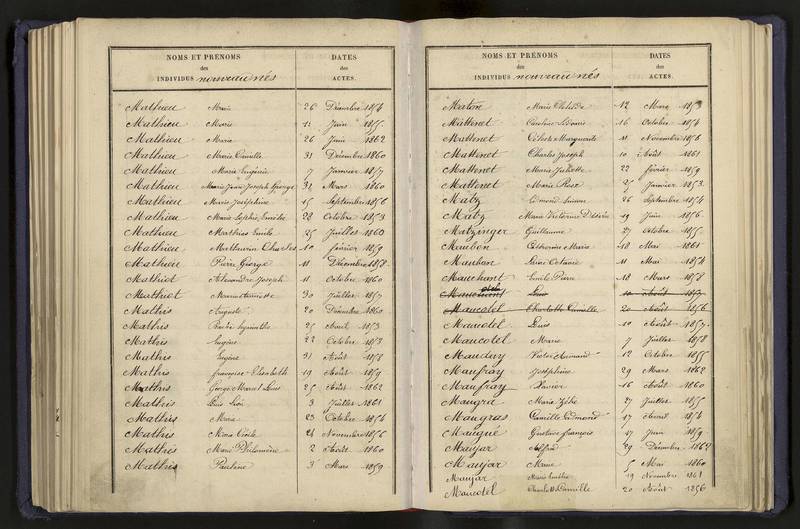 NOMS ET PRÉNOMS DATES
des des
INDIVIDUS nouveau nés ACTES.
Mathieu Marie 26 Décembre 1854
Mathieu Marie 12 Juin 1855
Mathieu Maria 26 Juin 1862
Mathieu Marie Camille 31 Décembre 1860
Mathieu Marie Eugénie 7 Janvier 1857
Mathieu Marie Jean Joseph George 31 Mars 1860
Mathieu Marie Joséphine 15 Septembre 1856
Mathieu Marie Sophie 22 Octobre 1853
Mathieu Mathias Emile 25 Juillet 1860
Mathieu Mathurin Charles 10 février 1859
Mathieu Pierre George 11 Décembre 1858
Mathiot Alexandre Joseph 11 Octobre 1860
Mathiot 30 Juillet 1857
Mathis Auguste 20 Décembre 1860
Mathis 25 Avril 1853
Mathis Eugène 22 Octobre 1853
Mathis Eugène 31 Août 1858
Mathis françoise Elisabeth 19 Août 1859
Mathis George Marcel Louis 25 Août 1862
Mathis Louis Léon 3 Juillet 1861
Mathis Maria 23 Octobre 1854
Mathis Cécile 24 Novembre 1856
Mathis Marie Philomène 2 Août 1860
Mathis Pauline 3 Mars 1859
NOMS ET PRÉNOMS DATES
des des
INDIVIDUS nouveau nés ACTES.
Maton Marie Clotilde 12 Mars 1853
Mattenet Caroline 16 Octobre 1854
Mattenet Céleste Marguerite 11 Novembre 1856
Mattenet Charles Joseph 10 Août 1861
Mattenet Marie Juliette 22 février 1859
Mattenet Marie Rose 27 Janvier 1853
Matz Edmond 26 Septembre 1854
Matz Marie Victorine Désirée 19 Juin 1856
Matzinger Guillaume 27 Octobre 1855
Maubon Catherine Marie 18 Mai 1861
Maubon Octavie 11 Mai 1854
Mauchant Emile Pierre 18 Mars 1858
Louis 10 Août 1857
Maucotel Charlotte Camille 20 Août 1856
Maucotel Louis 10 Août 1857
Maucotel Marie 7 Juillet 1858
Mauduy Victor Armand 12 Octobre 1855
Maufray Joséphine 29 Mars 1862
Maufray Xavier 16 Août 1860
Maugra Marie 27 Juillet 1855
Maugras Camille Edmond 17 Avril 1854
Maugué Gustave françois 17 Juin 1859
Maujar Alfred 29 Décembre 1862
Maujar Marie 5 Mai 1860
Maujar Marie 19 Novembre 1861
Maucotel Charlotte Camille 20 Août 1856